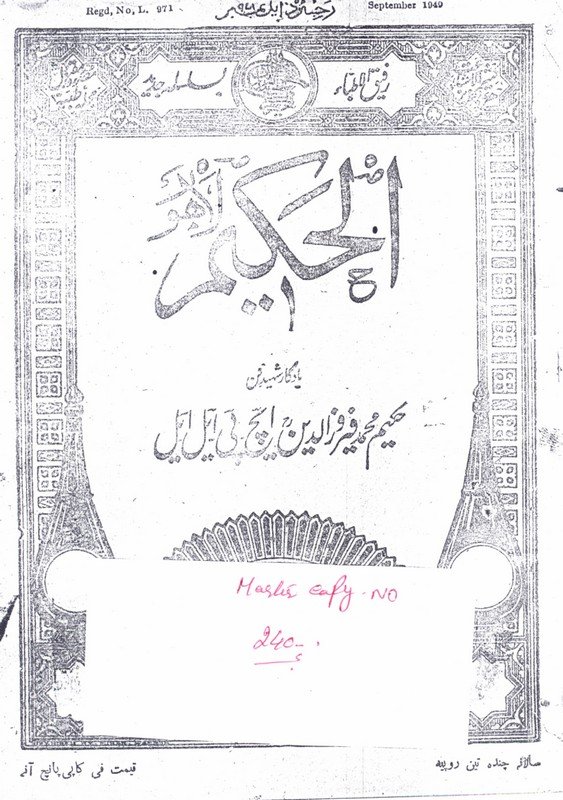 Regd, No, L. 971 رجسٹرڈ: ایل نمبر ۹۷۱ September 1949
رفیق الاطباء بسلسلہ جدید
الحکیم
لاہور
یادگار شہید فن
حکیم محمد فیروز الدین ایچ پی ایل ایل
Master Copy. NO
240
سالانہ چندہ تین روپیہ قیمت فی کاپی پانچ آنے